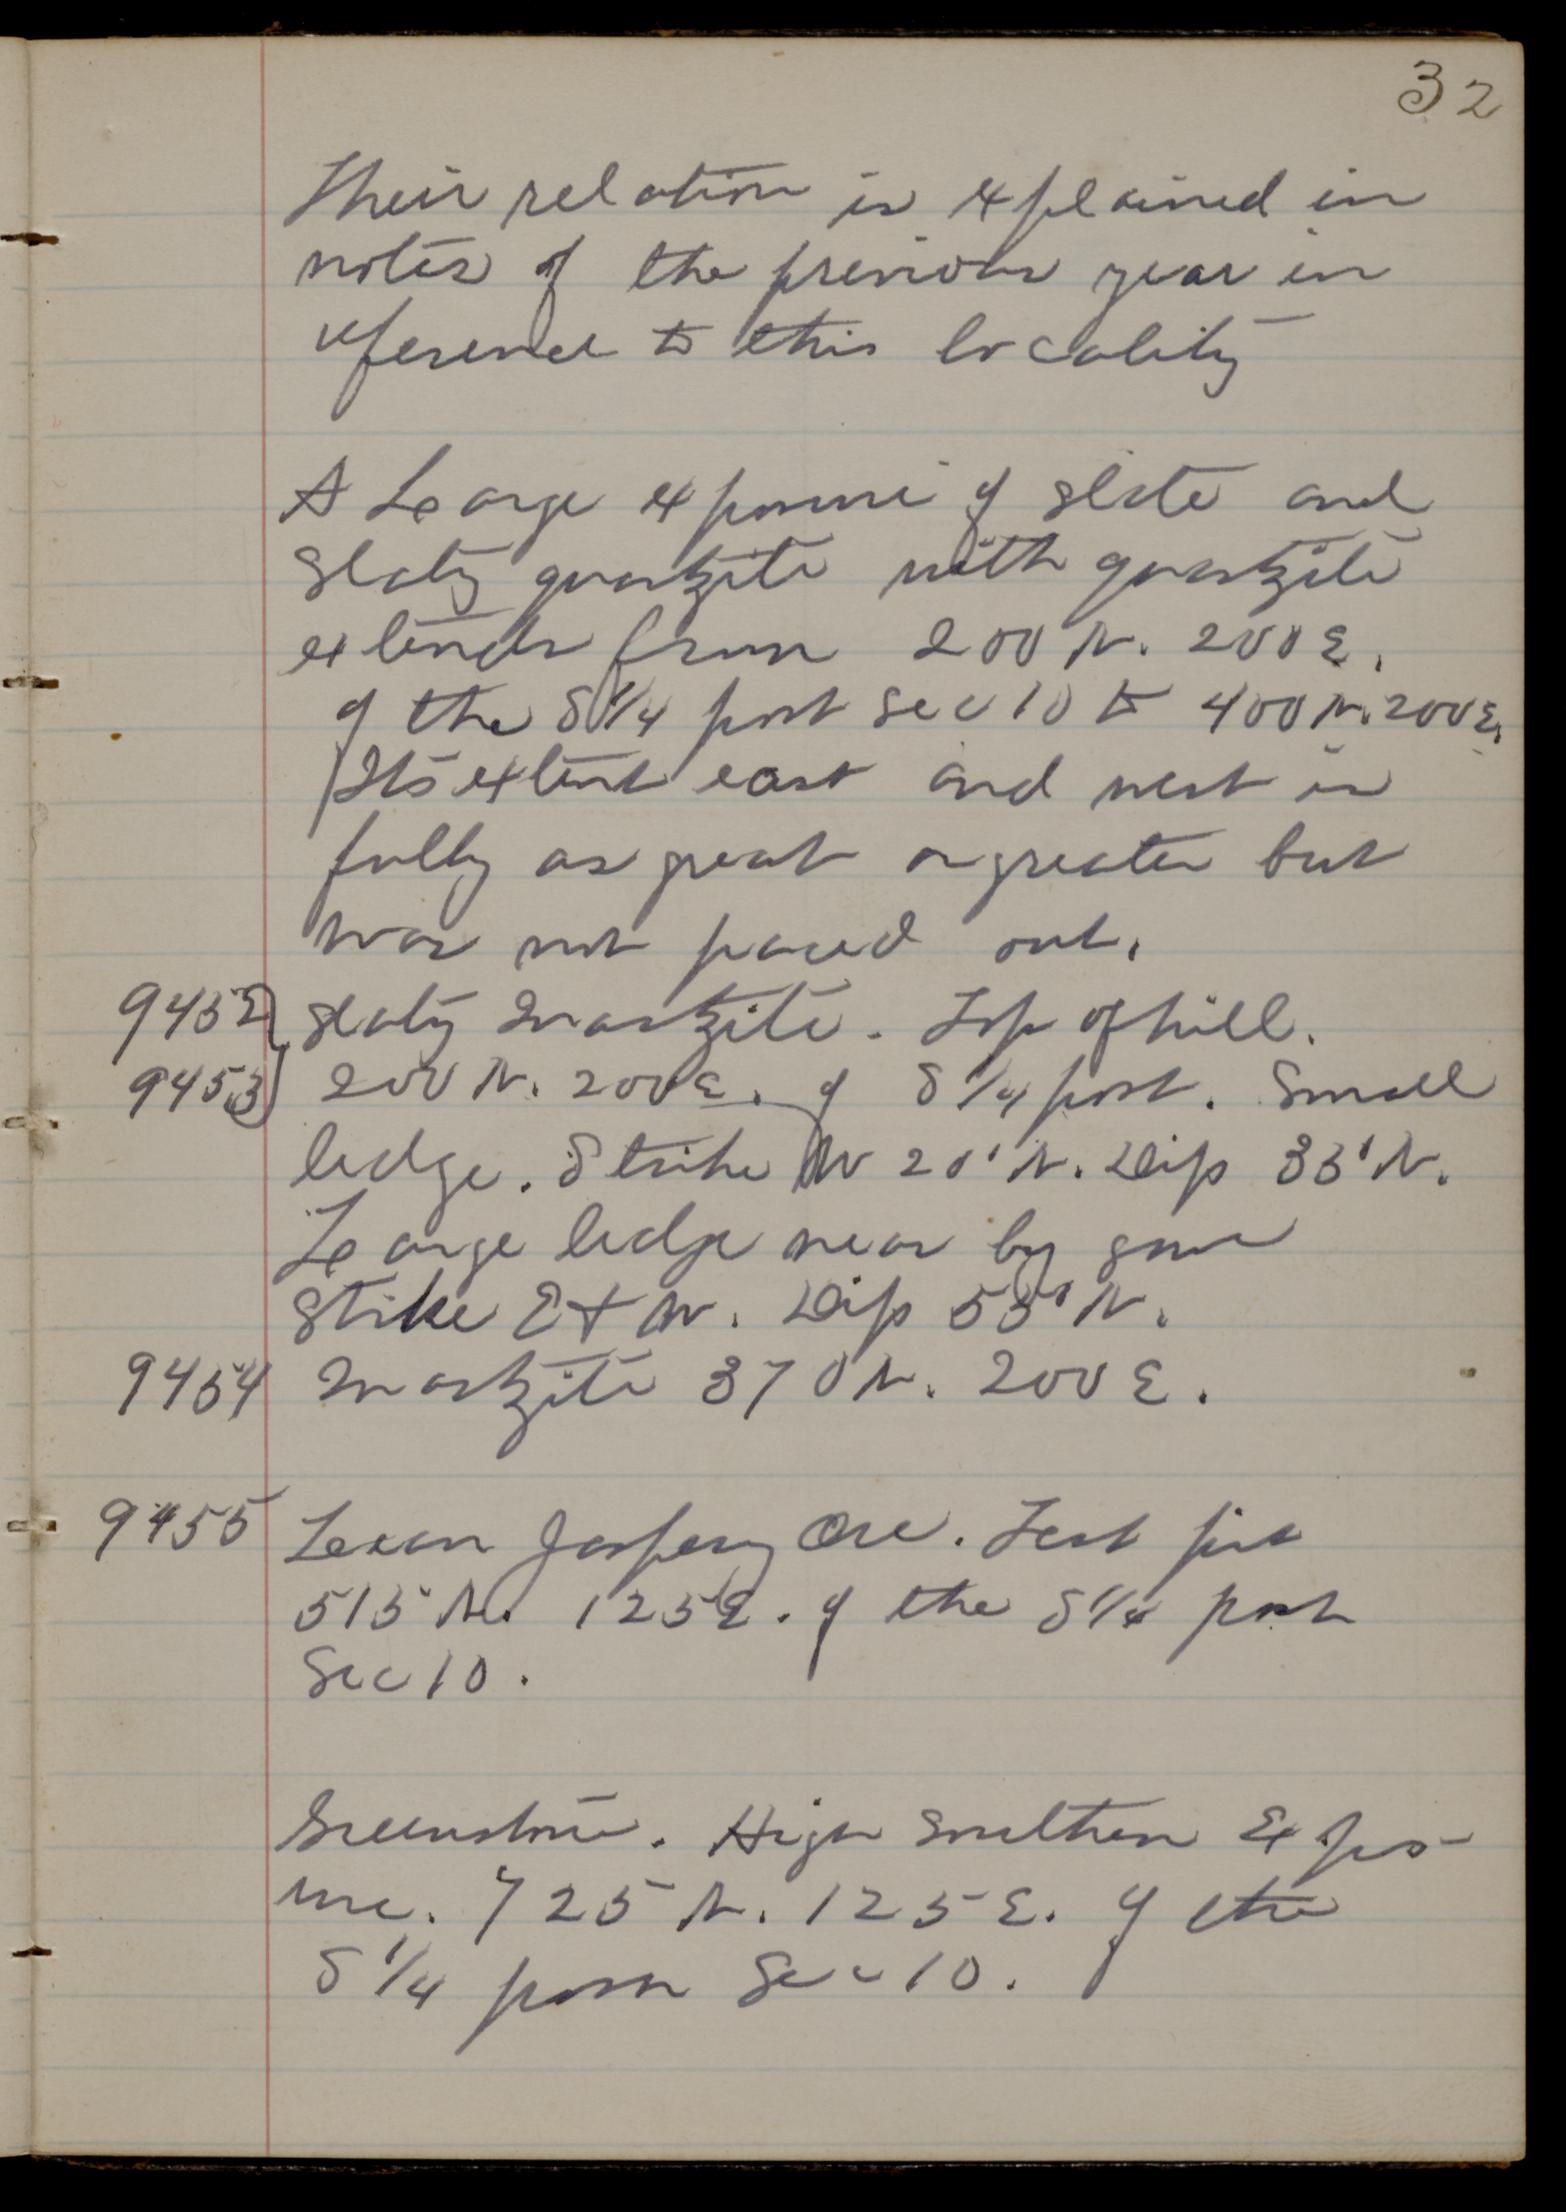 32
Their relation is explained in
notes of the previous year in
reference to this locality
A Large exposure of slate and
Slaty quartzite with quartzite
extends from 200 N. 200 E.
of the S 1/4 post Sec 10 to 400 N. 200 E.
Its extent east and west is
fully as great or greater but
was not paced out.
9452 Slaty Quartzite. Top of hill.
9453 200 N. 200 E. of S 1/4 post. Small
ledge. Strike W 20° N. Dip 35° N.
Large ledge near by gave
Strike E + W. Dip 55° N.
9454 Quartzite 370 N. 200 E.
9455 Lean Jaspery Ore. Test pit
515 N. 125 E. of the S 1/4 post
Sec 10.
Greenstone. High Southern Expo-
sure. 725 N. 125 E. of the
S 1/4 post Sec 10.